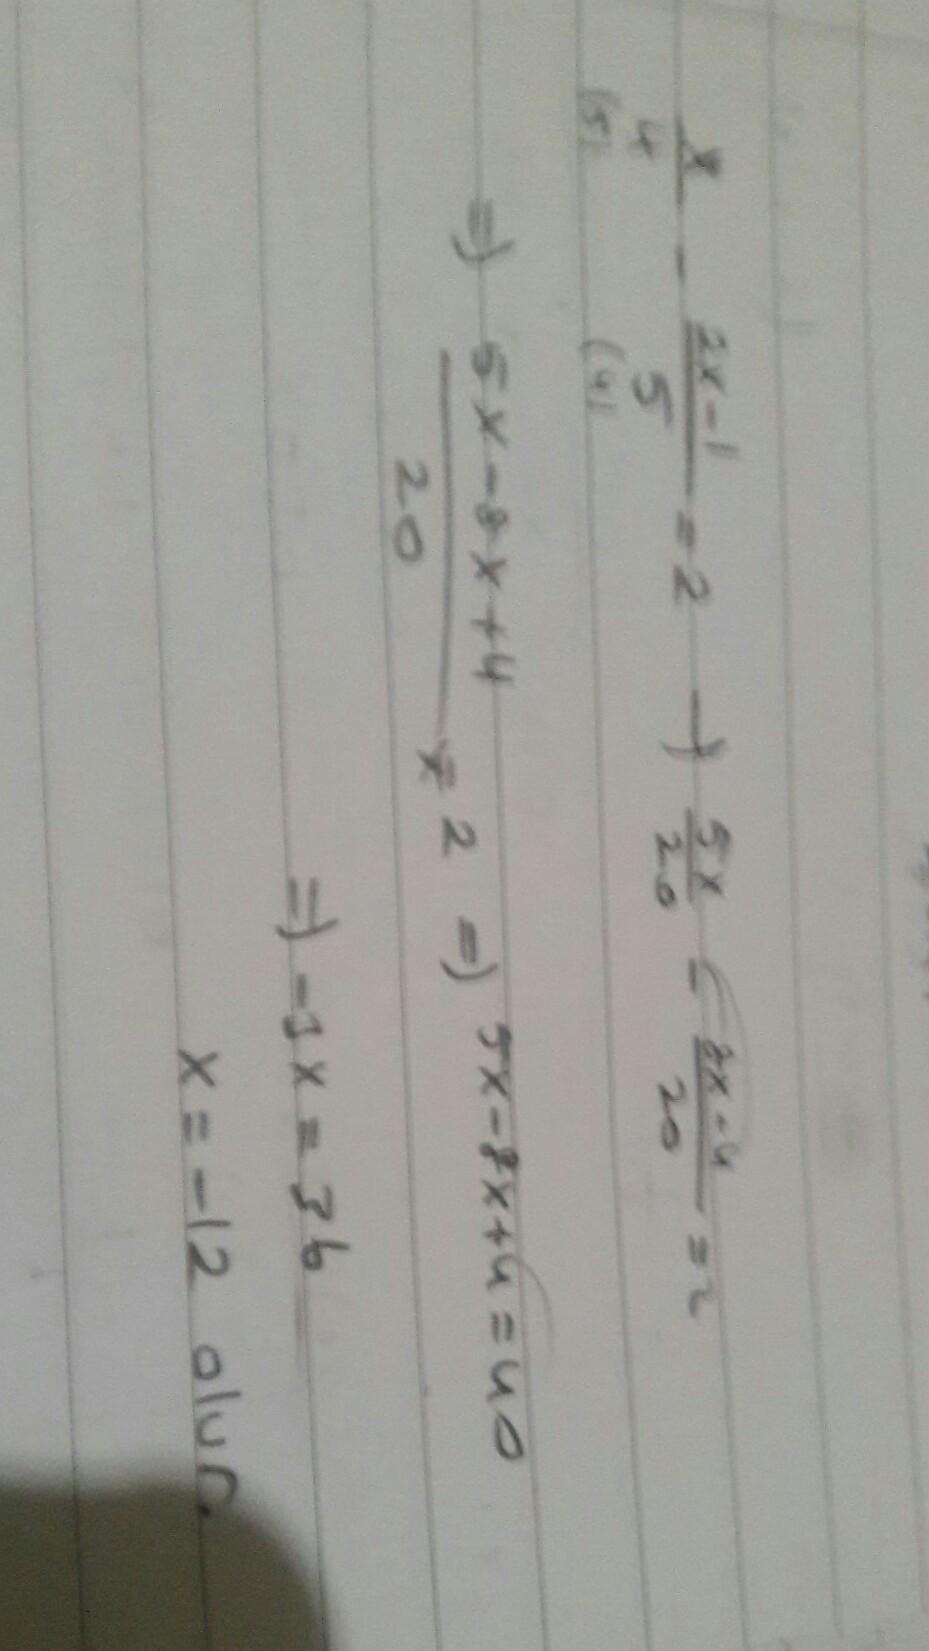 x/4 - 2x-1/5 = 2 → 5x/20 - 8x-4/20 = 2
(5) (4)
⇒ 5x-8x+4/20 = 2 ⇒ 5x-8x+4=40
⇒ -3x = 36
x = -12 olur.